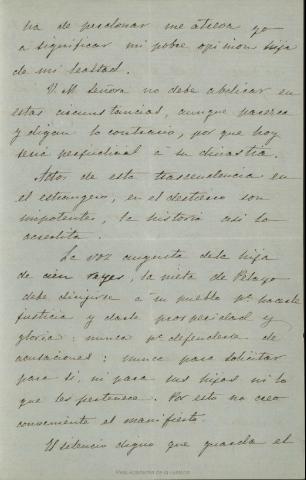 ha de perdonar me atreva yo
a significar mi pobre opinion hija
de mi lealtad.
V. M. Señora no debe abdicar en
estas circunstancias, aunque parezca
y digan lo contrario, por que hoy
seria perjudicial a su dinastia.
Actos de esta trascendencia en
el estrangero, en el destierro son
impotentes, la historia asi lo
acredita.
La voz augusta de la hija
de cien reyes, la nieta de Pelayo
debe dirijirse a su pueblo pª hacerle
justicia y darle prosperidad y
gloria: nunca pª defenderse de
acusaciones: nunca para solicitar
para si, ni para sus hijos ni lo
que les pertenece. Por esto no creo
conveniente el manifiesto.
El silencio digno que guarda el
Real Academia de la Historia